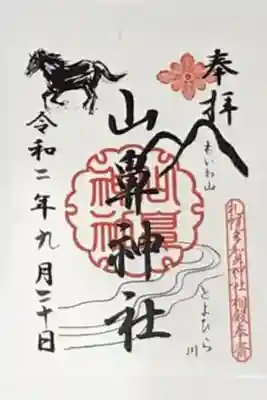 奉拝
もいわ山
山鼻神社
とよひら川
令和二年九月二十日